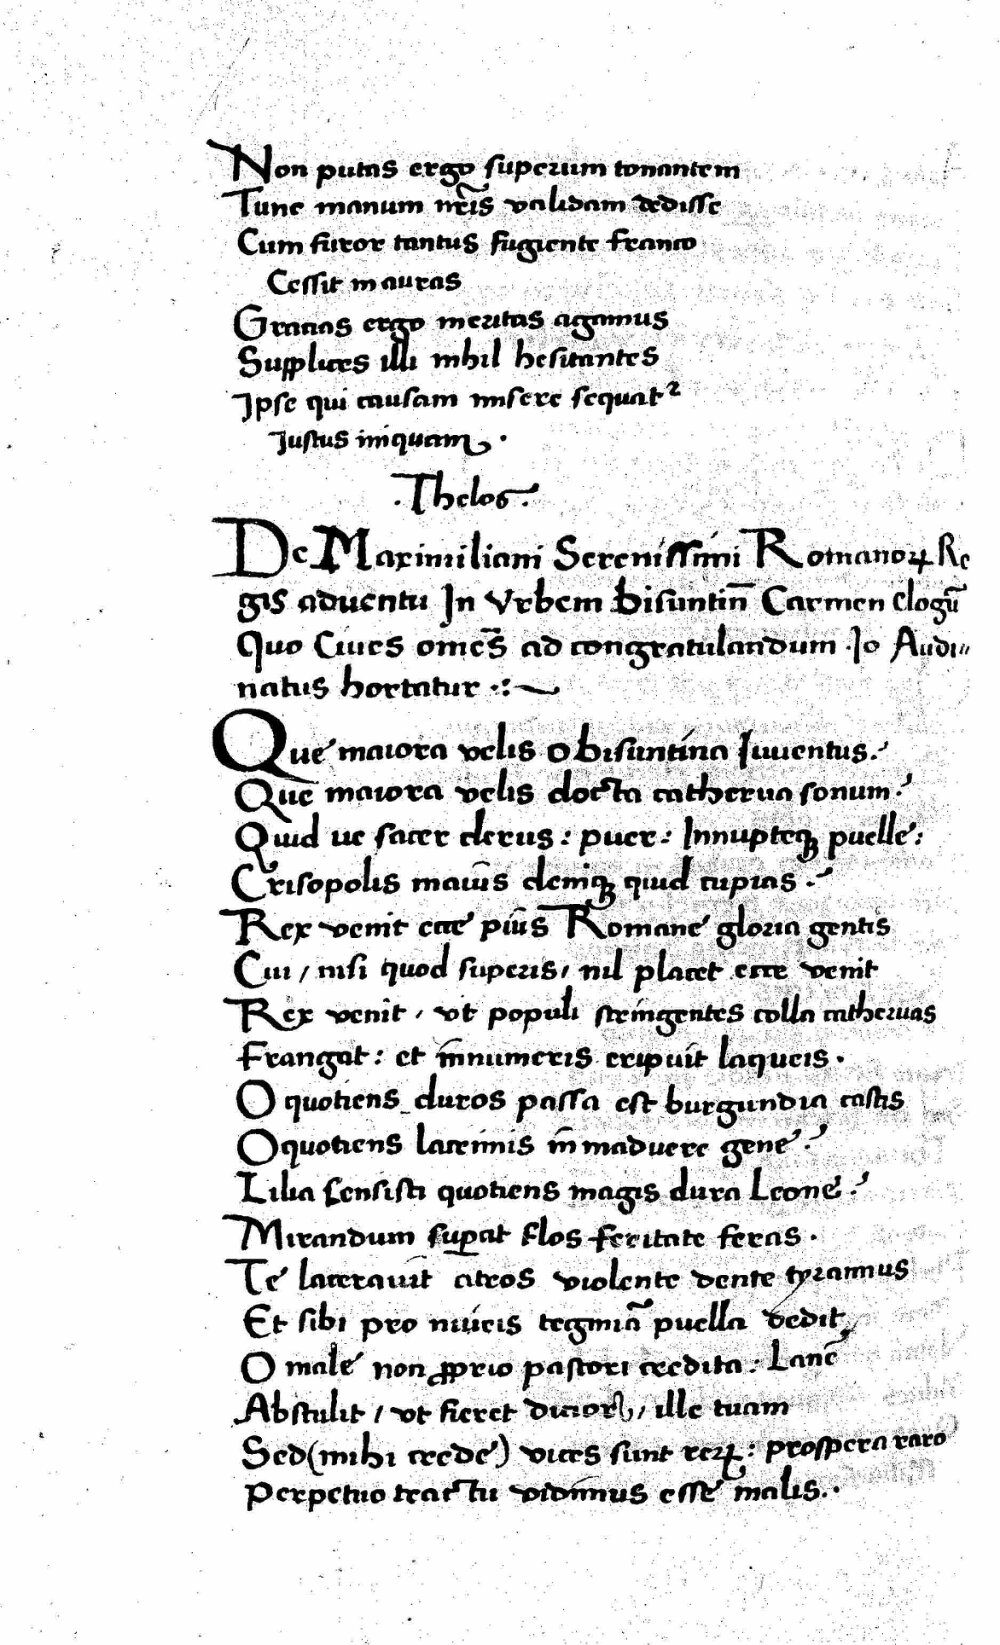 Non putas ergo superum tonantem
Tunc manum nr̃is validam dedisse
Cum furor tantus fugiente franco
Cessit in auras
Gratias ergo meritas agamus
Supplices illi nihil hesitantes
Ipse qui causam misere sequat᷑
Justus iniquam.
.Thelos.
De Maximiliani Serenissimi Romanoꝝ Re
gis aduentu In Vrbem bisuntin̄ Carmen elogũ
Quo Ciues omẽs ad congratulandum .Jo Audi⸗
natus hortatur
Que maiora velis o bisuntina Iuuentus.
Que maiora velis docta catherua sonum.
Quid ue sacer clerus: puer: Innupteqꝫ puelle:
Crisopolis maius deniqꝫ quid cupias.
Rex venit ecce pius Romane gloria gentis
Cui / nisi quod superis / nil placet ecce venit
Rex venit / vt populi stringentes colla catheruas
Frangat: et innumeris eripuit laqueis.
O quotiens duros passa est burgundia castis
O quotiens lacrimis immaduere gene.
Lilia sensisti quotiens magis dura Leone.
Mirandum suꝑat flos feritate feras.
Te lacerauit atros violente dente tyrannus
Et sibi pro niueis tegminã puella dedit
O male non ꝓprio pastori credita: Lanẽ
Abstulit / vt fieret dicior / ille tuam
Sed (mihi crede) vices sunt reꝝ: prospera raro
Perpetuo tractu vidimus esse malis.